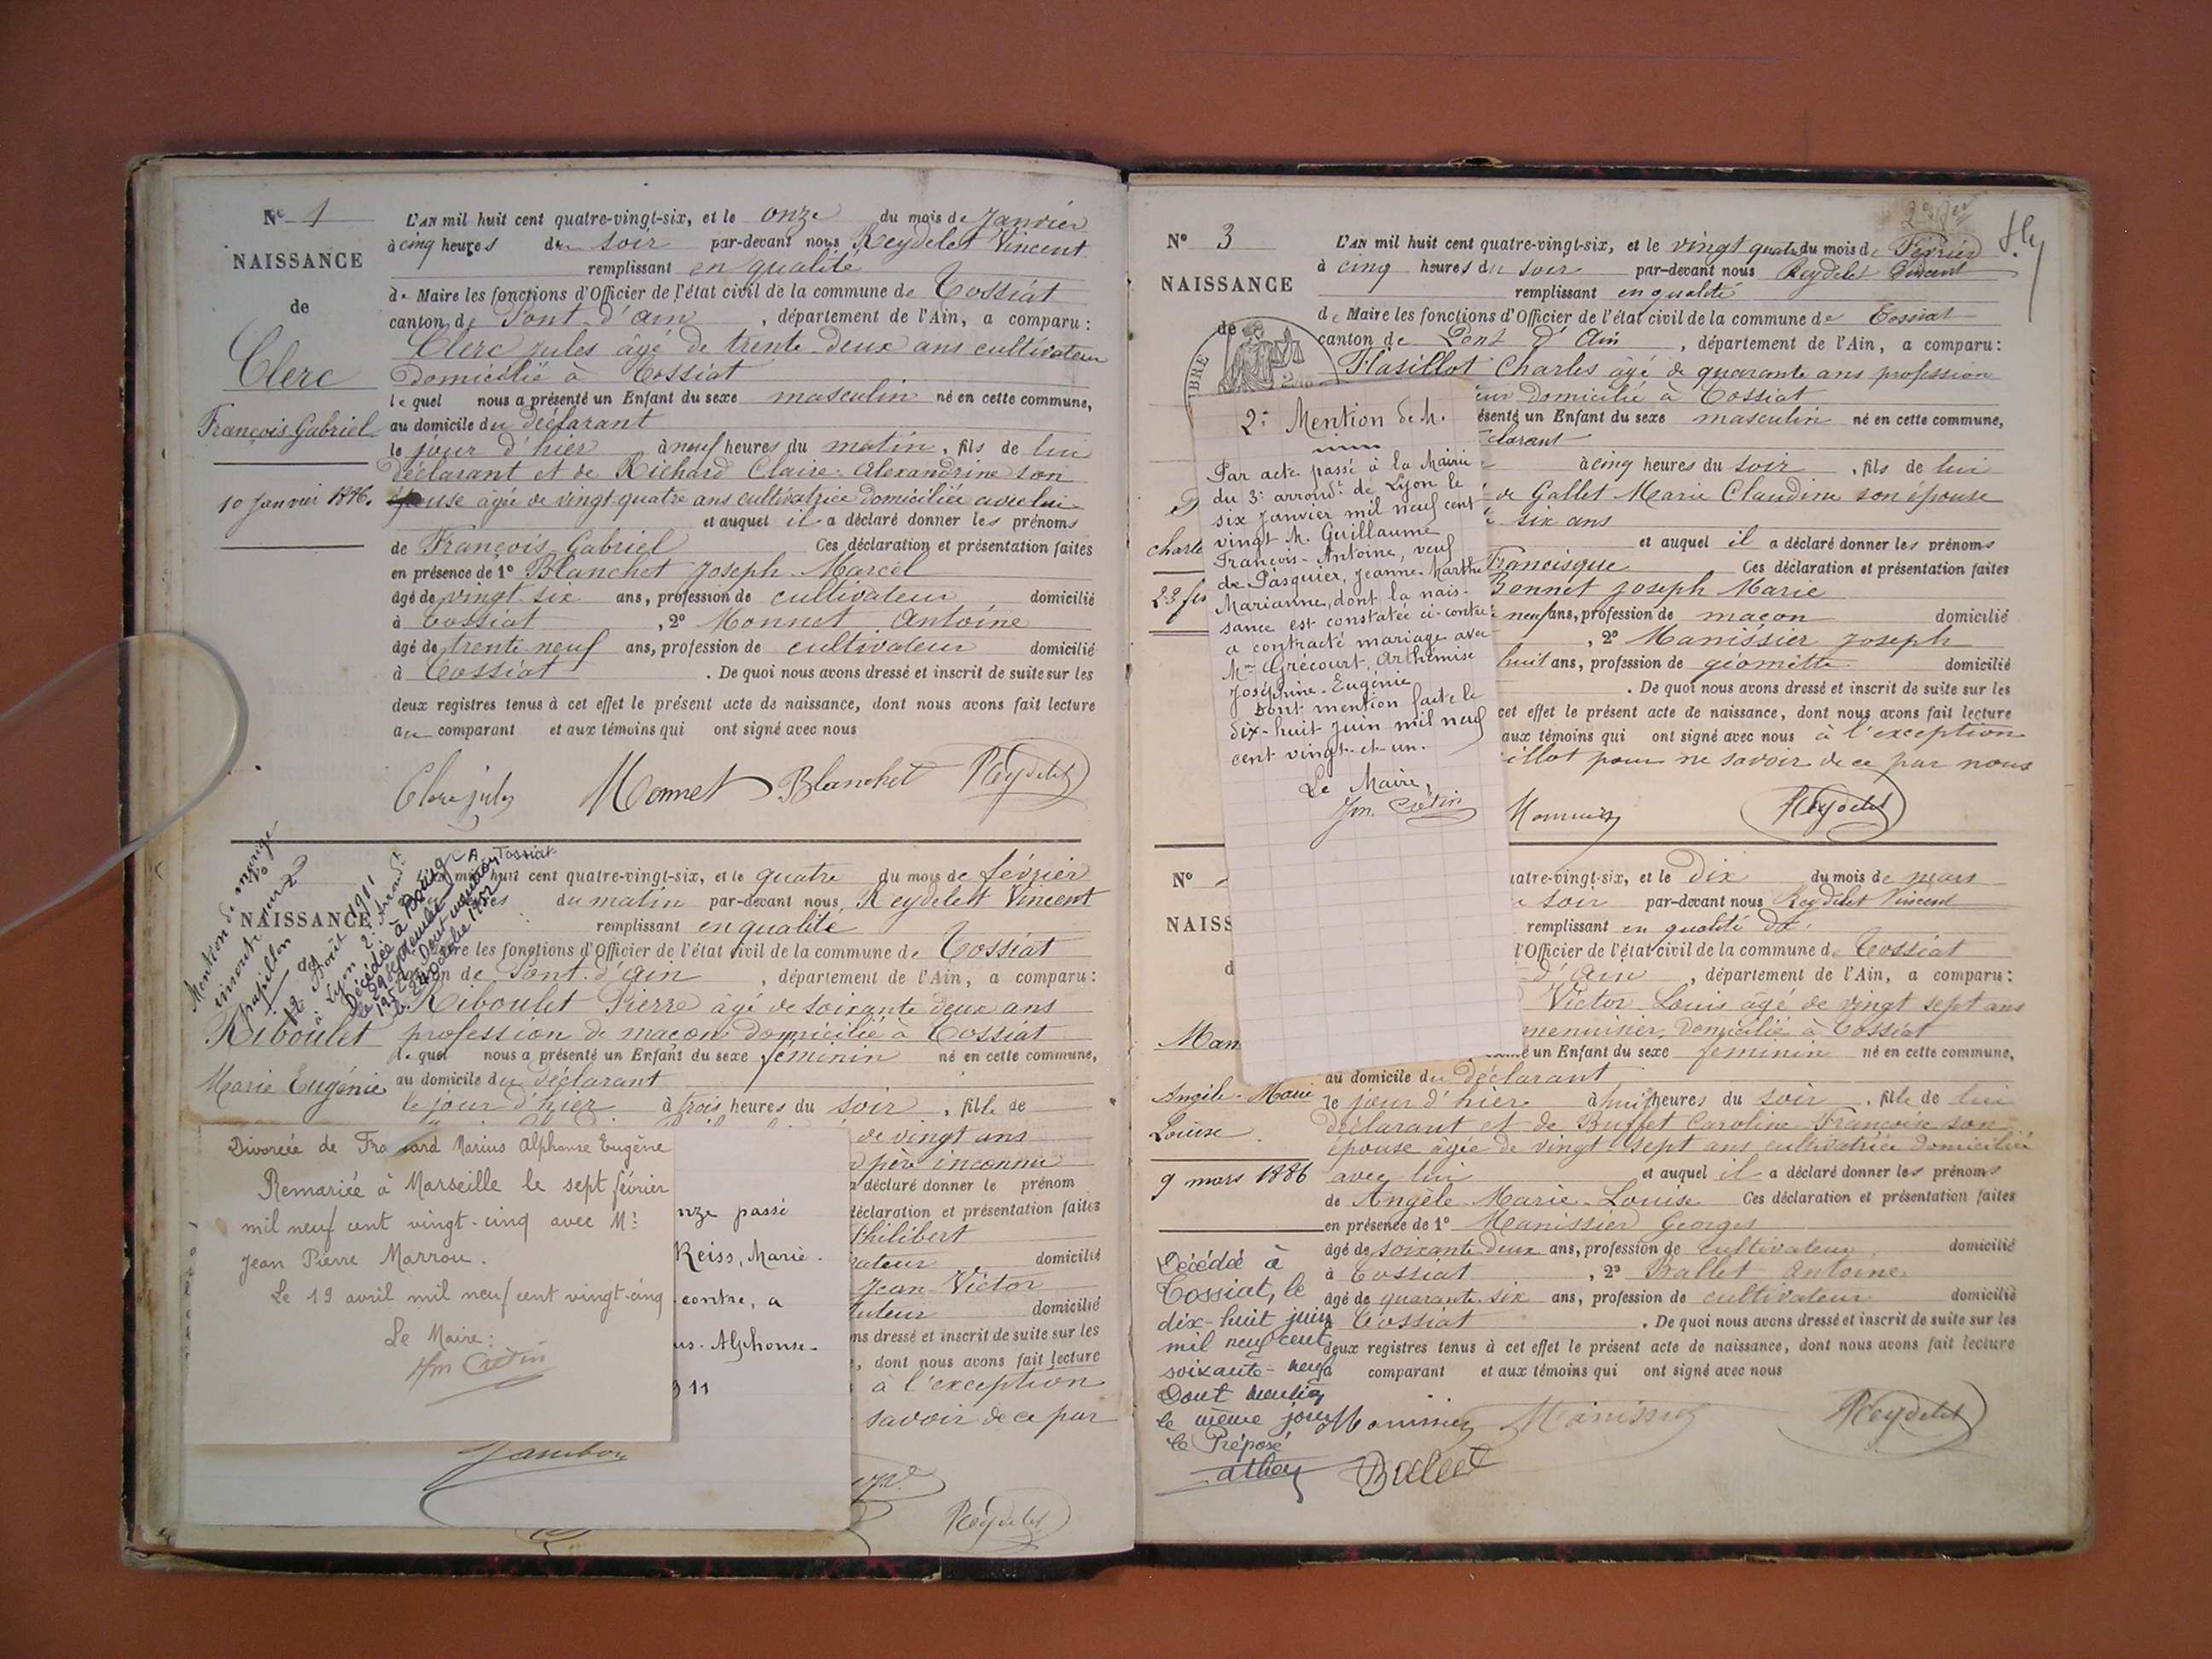 N° 1
NAISSANCE
de
Clerc
François Gabriel
10 Janvier 1886.
L'AN mil huit cent quatre-vingt-six, et le onze du mois de Janvier
à cinq heures du soir par-devant nous Reydelet Vincent
remplissant en qualité
de Maire les fonctions d'Officier de l'état civil de la commune de Tossiat
canton de Pont d'ain, département de l'Ain, a comparu :
Clerc jules âgé de trente deux ans cultivateur
domicilié à Tossiat
lequel nous a présenté un Enfant du sexe masculin né en cette commune,
au domicile du déclarant
le jour d'hier à neuf heures du matin, fils de lui
déclarant et de Richard Claire Alexandrine son
épouse âgée de vingt quatre ans cultivatrice domiciliée avec lui
et auquel il a déclaré donner les prénoms
de François Gabriel Ces déclaration et présentation faites
en présence de 1° Blanchet Joseph Marcel
âgé de vingt six ans, profession de cultivateur domicilié
à Tossiat, 2° Monnet Antoine
âgé de trente neuf ans, profession de cultivateur domicilié
à Tossiat. De quoi nous avons dressé et inscrit de suite sur les
deux registres tenus à cet effet le présent acte de naissance, dont nous avons fait lecture
au comparant et aux témoins qui ont signé avec nous
Clerc jules Monnet Blanchet Reydelet
N° 2
NAISSANCE
Mention de mariage
inscrite sur
papillon
12 Août 1911
à Lyon 2e Arrondt
Décédée à Bourg
le 29 septembre
Dont mention
Tossiat
Riboulet
Marie Eugénie
mil huit cent quatre-vingt-six, et le quatre du mois de février
du matin par-devant nous, Reydelet Vincent
remplissant en qualité
les fonctions d'Officier de l'état civil de la commune de Tossiat
de Pont d'ain, département de l'Ain, a comparu :
Riboulet Pierre âgé de soixante deux ans
profession de maçon domicilié à Tossiat
lequel nous a présenté un Enfant du sexe féminin né en cette commune,
au domicile du déclarant
le jour d'hier à trois heures du soir, fille de
de vingt ans
père inconnu
a déclaré donner le prénom
déclaration et présentation faites
Philibert
domicilié
Jean Victor
domicilié
dressé et inscrit de suite sur les
, dont nous avons fait lecture
à l'exception
savoir de ce par
Reydelet
Divorcée de Marius Alphonse Eugène
Remariée à Marseille le sept février
mil neuf cent vingt-cinq avec Mr
Jean Pierre Marrou.
Le 19 avril mil neuf cent vingt-cinq
Le Maire :
Jm Cretin
passé
Reiss, Marie-
contre, a
Alphonse-
11
Jambon
N° 3
NAISSANCE
de
23
L'AN mil huit cent quatre-vingt-six, et le vingt quatre du mois de Février
à cinq heures du soir par-devant nous Reydelet Vincent
remplissant en qualité
de Maire les fonctions d'Officier de l'état civil de la commune de Tossiat
canton de Pont d'Ain, département de l'Ain, a comparu :
Charles âgé de quarante ans profession
domicilié à Tossiat
un Enfant du sexe masculin né en cette commune,
à cinq heures du soir, fils de lui
de Gallet Marie Claudine son épouse
six ans
et auquel il a déclaré donner les prénoms
Francisque Ces déclaration et présentation faites
Bonnet Joseph Marie
neuf ans, profession de maçon domicilié
, 2° Manissier Joseph
huit ans, profession de géomètre domicilié
. De quoi nous avons dressé et inscrit de suite sur les
cet effet le présent acte de naissance, dont nous avons fait lecture
aux témoins qui ont signé avec nous à l'exception
pour ne savoir de ce par nous
Reydelet
2e Mention de M.
Par acte passé à la Mairie
du 3e arrondt de Lyon le
six Janvier mil neuf cent
vingt M. Guillaume
François-Antoine, veuf
de Pasquier, Jeanne-Marthe
Marianne, dont la nais-
sance est constatée ci-contre
a contracté mariage avec
Mme Grécourt, Arthémise
Joséphine-Eugénie
Dont mention faite le
dix-huit juin mil neuf
cent vingt-et-un.
Le Maire,
Jm. Cretin
N°
NAISS
Angèle-Marie
Louise
9 mars 1886
quatre-vingt-six, et le dix du mois de mars
soir par-devant nous Reydelet Vincent
remplissant en qualité de
l'Officier de l'état civil de la commune de Tossiat
d'Ain, département de l'Ain, a comparu :
Victor Louis âgé de vingt sept ans
menuisier domicilié à Tossiat
un Enfant du sexe féminin né en cette commune,
au domicile du déclarant
le jour d'hier à huit heures du soir, fille de lui
déclarant et de Buffet Caroline Françoise son
épouse âgée de vingt sept ans cultivatrice domiciliée
avec lui et auquel il a déclaré donner les prénoms
de Angèle Marie-Louise Ces déclaration et présentation faites
en présence de 1° Manissier Georges
âgé de soixante deux ans, profession de cultivateur domicilié
à Tossiat, 2° Ballet Antoine
âgé de quarante six ans, profession de cultivateur domicilié
à Tossiat. De quoi nous avons dressé et inscrit de suite sur les
deux registres tenus à cet effet le présent acte de naissance, dont nous avons fait lecture
comparant et aux témoins qui ont signé avec nous
Décédée à
Tossiat, le
dix-huit juin
mil neuf cent
soixante-neuf
Dont mention
le même jour
le Préposé
Manissier Manissier Reydelet
Ballet